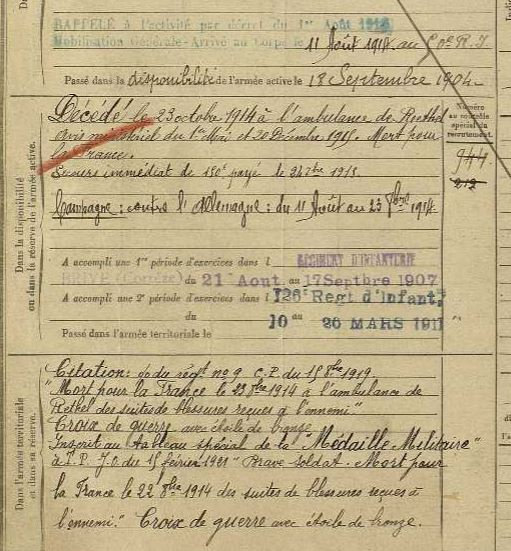 RAPPELÉ à l'activité par décret du 1er Août 1914
Mobilisation Générale - Arrivé au Corps le 11 Août 1914 au R. I.
Passé dans la disponibilité de l'armée active le 18 Septembre 1904.
Dans la disponibilité
ou dans la réserve de l'armée active.
Décédé le 23 octobre 1914 à l'ambulance de Rethel
avis ministériel du 1er Mai et 20 Décembre 1915. Mort pour
la France.
Secours immédiat de 150f payé le
Campagne : contre l'Allemagne : du 11 Août au 23 1914
Numéro
au contrôle
spécial du
recrutement.
944
212
A accompli une 1re période d'exercices dans l RÉGIMENT D'INFANTERIE
(Corrèze) du 21 Aout au 17 Septbre 1907
A accompli une 2e période d'exercices dans l 126e Regt d'Infant,
du 10 au 26 MARS 1911
Passé dans l'armée territoriale le
Dans l'armée territoriale
et dans sa réserve.
Citation : du régt no 9 du 15 1919
"Mort pour la France le 23 1914 à l'ambulance de
Rethel des suites de blessures reçues à l'ennemi"
Croix de guerre avec étoile de bronze.
Inscrit au tableau spécial de la "Médaille Militaire"
à T.P. J.O. du 15 février 1921 "Brave soldat. Mort pour
la France le 22 8bre 1914 des suites de blessures reçues à
l'ennemi." Croix de guerre avec étoile de bronze.